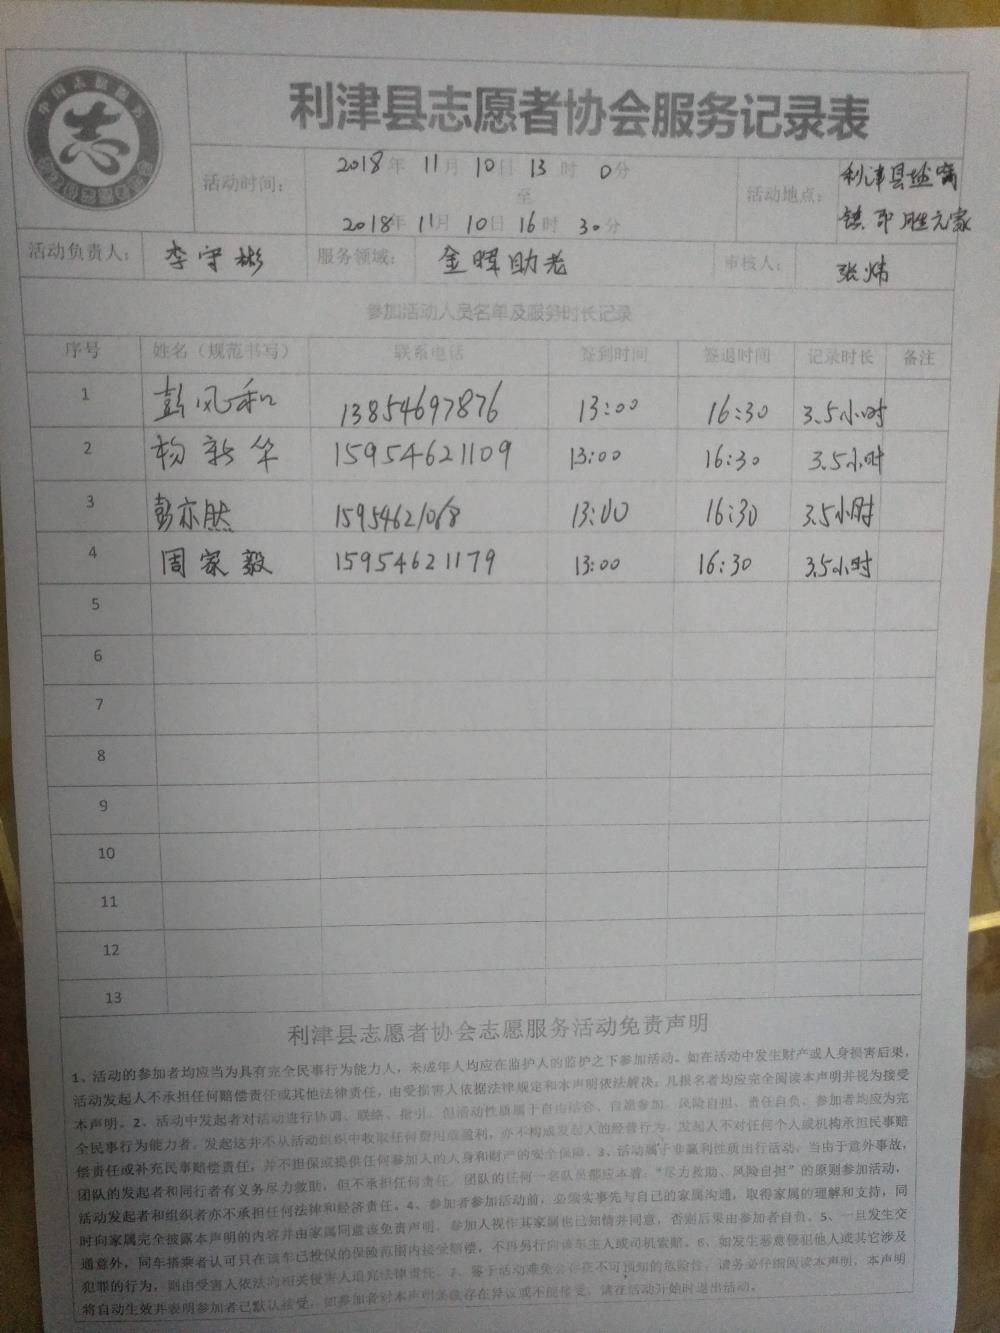 中国志愿服务
志
利津县志愿者协会服务记录表
活动时间：
2018年 11月 10日 13时 0分
至
2018年 11月 10日 16时 30分
活动地点：
利津县盐窝
镇
活动负责人： 李守彬 服务领域： 金晖助老 审核人： 张炜
参加活动人员名单及服务时长记录
序号 姓名（规范书写） 联系电话 签到时间 签退时间 记录时长 备注
1 彭凤和 13854697876 13:00 16:30 3.5小时
2 杨新华 15954621109 13:00 16:30 3.5小时
3 彭亦然 15954621068 13:00 16:30 3.5小时
4 周家毅 15954621179 13:00 16:30 3.5小时
5
6
7
8
9
10
11
12
13
利津县志愿者协会志愿服务活动免责声明
1、活动的参加者均应当为具有完全民事行为能力人，未成年人均应在监护人的监护之下参加活动。如在活动中发生财产或人身损害后果，
活动发起人不承担任何赔偿责任或其他法律责任，由受损害人依据法律规定和本声明依法解决；凡报名者均应完全阅读本声明并视为接受
本声明。2、活动中发起者对活动进行协调、联络、指引。但活动性质属于自由结合、自愿参加、风险自担、责任自负。参加者均应为完
全民事行为能力者。发起这并不从活动组织中收取任何费用或盈利，亦不构成发起人的经营行为。发起人不对任何个人或机构承担民事赔
偿责任或补充民事赔偿责任，并不担保或提供任何参加人的人身和财产的安全保障。3、活动属于非赢利性质出行活动，当由于意外事故，
团队的发起者和同行者有义务尽力救助，但不承担任何责任。团队的任何一名队员都应本着：“尽力救助、风险自担”的原则参加活动，
活动发起者和组织者亦不承担任何法律和经济责任。4、参加者参加活动前，必须实事先与自己的家属沟通，取得家属的理解和支持，同
时向家属完全披露本声明的内容并由家属同意该免责声明。参加人视作其家属也已知情并同意，否则后果由参加者自负。5、一旦发生交
通意外，同车搭乘者认可只在该车已投保的保险范围内接受赔偿，不再另行向该车主人或司机索赔。6、如发生恶意侵犯他人或其它涉及
犯罪的行为，则由受害人依法向相关侵害人追究法律责任。7、鉴于活动难免会存在不可预知的危险性，请务必仔细阅读本声明，本声明
将自动生效并表明参加者已默认接受，如参加者对本声明条款存在异议或不能接受，请在活动开始时退出活动。